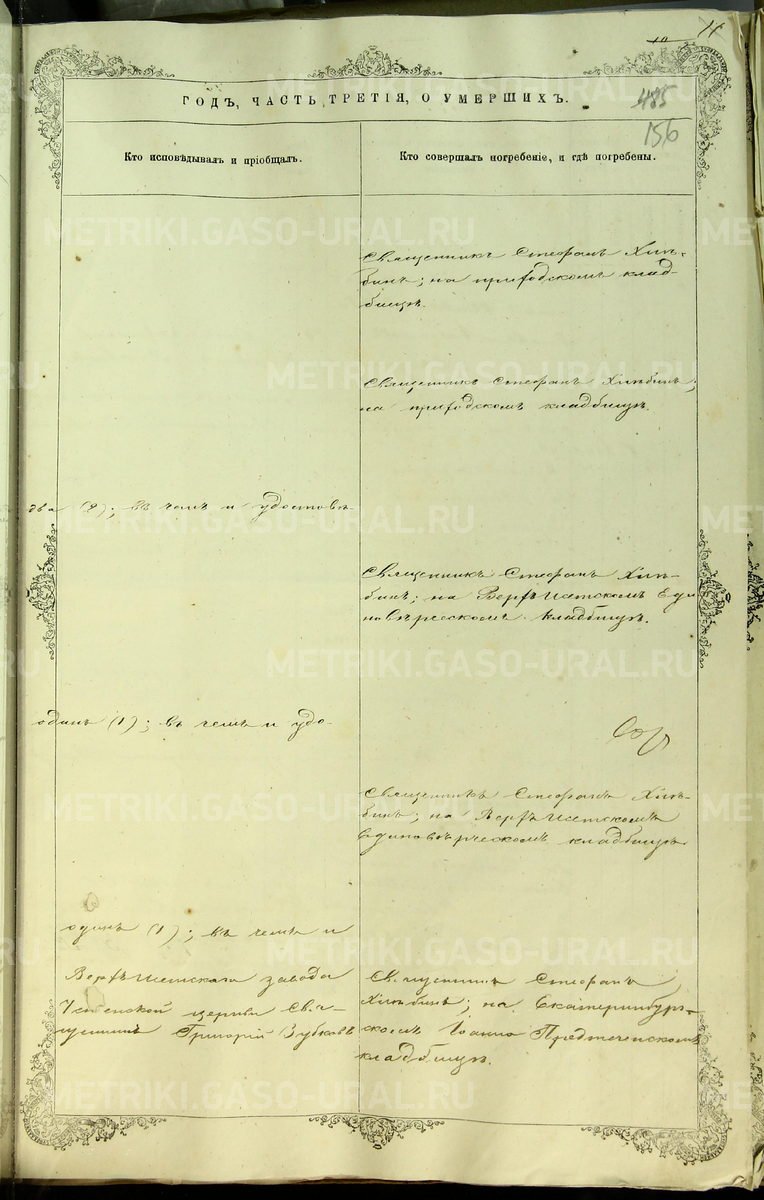 11
10
ГОДЪ, ЧАСТЬ ТРЕТІЯ, О УМЕРШИХЪ.
485
156
Кто исповѣдывалъ и пріобщалъ.
Кто совершалъ погребеніе, и гдѣ погребены.
Священникъ Стефанъ Хлѣ-
бинъ; на приходскомъ клад-
бищѣ.
Священникъ Стефанъ Хлѣбинъ;
на приходскомъ кладбищѣ.
два (2); въ чемъ и удостовѣ-
Священникъ Стефанъ Хлѣ-
бинъ; на Верхъ Исетскомъ Еди
новѣрческомъ кладбищѣ.
одинъ (1); въ чемъ и удо-
Священникъ Стефанъ Хлѣ-
бинъ; на Верхъ Исетскомъ
Единовѣрческомъ кладбищѣ
одинъ (1); въ чемъ и
Верхъ Исетскаго завода
церкви Свя-
щенникъ Григорій Зубковъ
Священникъ Стефанъ
Хлѣбинъ; на Екатеринбург-
скомъ Іоанно Предтеченскомъ
кладбищѣ.
METRIKI.GASO-URAL.RU